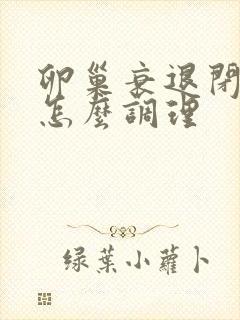 卵巢衰退閉
怎麼調理
綠葉小蘿卜